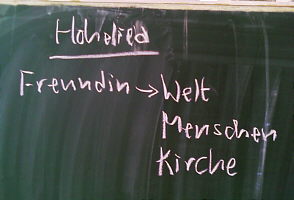 Hohelied
Freundin → Welt
Menschen
Kirche